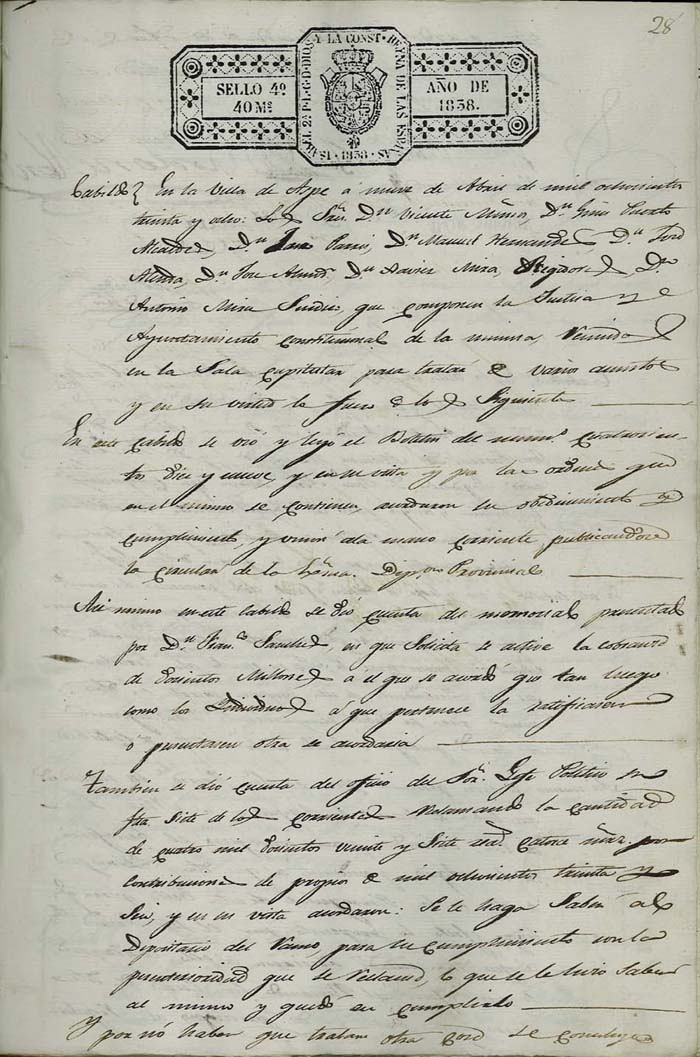 28
SELLO 4º
40 Ms.
ISABEL 2ª P. L. G. D. DIOS Y LA CONST. REYNA DE LAS ESPAÑAS
1838
AÑO DE
1838.
Cabildo En la Villa de Aspe á nueve de Abril de mil ochocientos
treinta y ocho: Los Sres. Dn. Vicente Dn. Ginés
Alcaldes, Dn. Dn. Manuel Hernandes, Dn. José
Dn. José Dn. Xavier Mira, Regidores Dn.
Antonio Mira Sindico, que componen la Justicia y
Ayuntamiento constitucional de la misma, Reunidos
en la Sala capitular para tratar de varios asuntos
y en su virtud lo fueron de los Siguientes
En este Cabildo se vió y leyó el Boletin del numo. cuatrocien-
tos diez y nueve, y en su vista y por las ordenes que
en el mismo se contienen, acordaron su obedecimiento y
cumplimiento, y unión á la mano corriente publicandose
la circular de la Exma. Dipon. Provincial
Asi mismo en este Cabildo se dió cuenta del memorial presentado
por Dn. Franco. Sanches, en que Solicita se active la cobranza
de Docientos Millones, a el que se acordó que tan luego
como los Individuos á que pertenece la ratificasen
o presentasen otra se acordaria
Tambien se dió cuenta del oficio del Sor. Gefe Politico su
fha. Siete de los corrientes Reclamando la cantidad
de cuatro mil Docientos veinte y Siete catorce mrz. por
contribuciones de propios de mil ochocientos treinta y
Seis, y en su vista acordaron: Se le haga Saber al
Depositario del Ramo, para su cumplimiento con la
perentoriedad que se Reclama, lo que se le hizo Saber
al mismo y quedó en cumplirlo
Y por nó haber que tratar otra cosa se concluyó